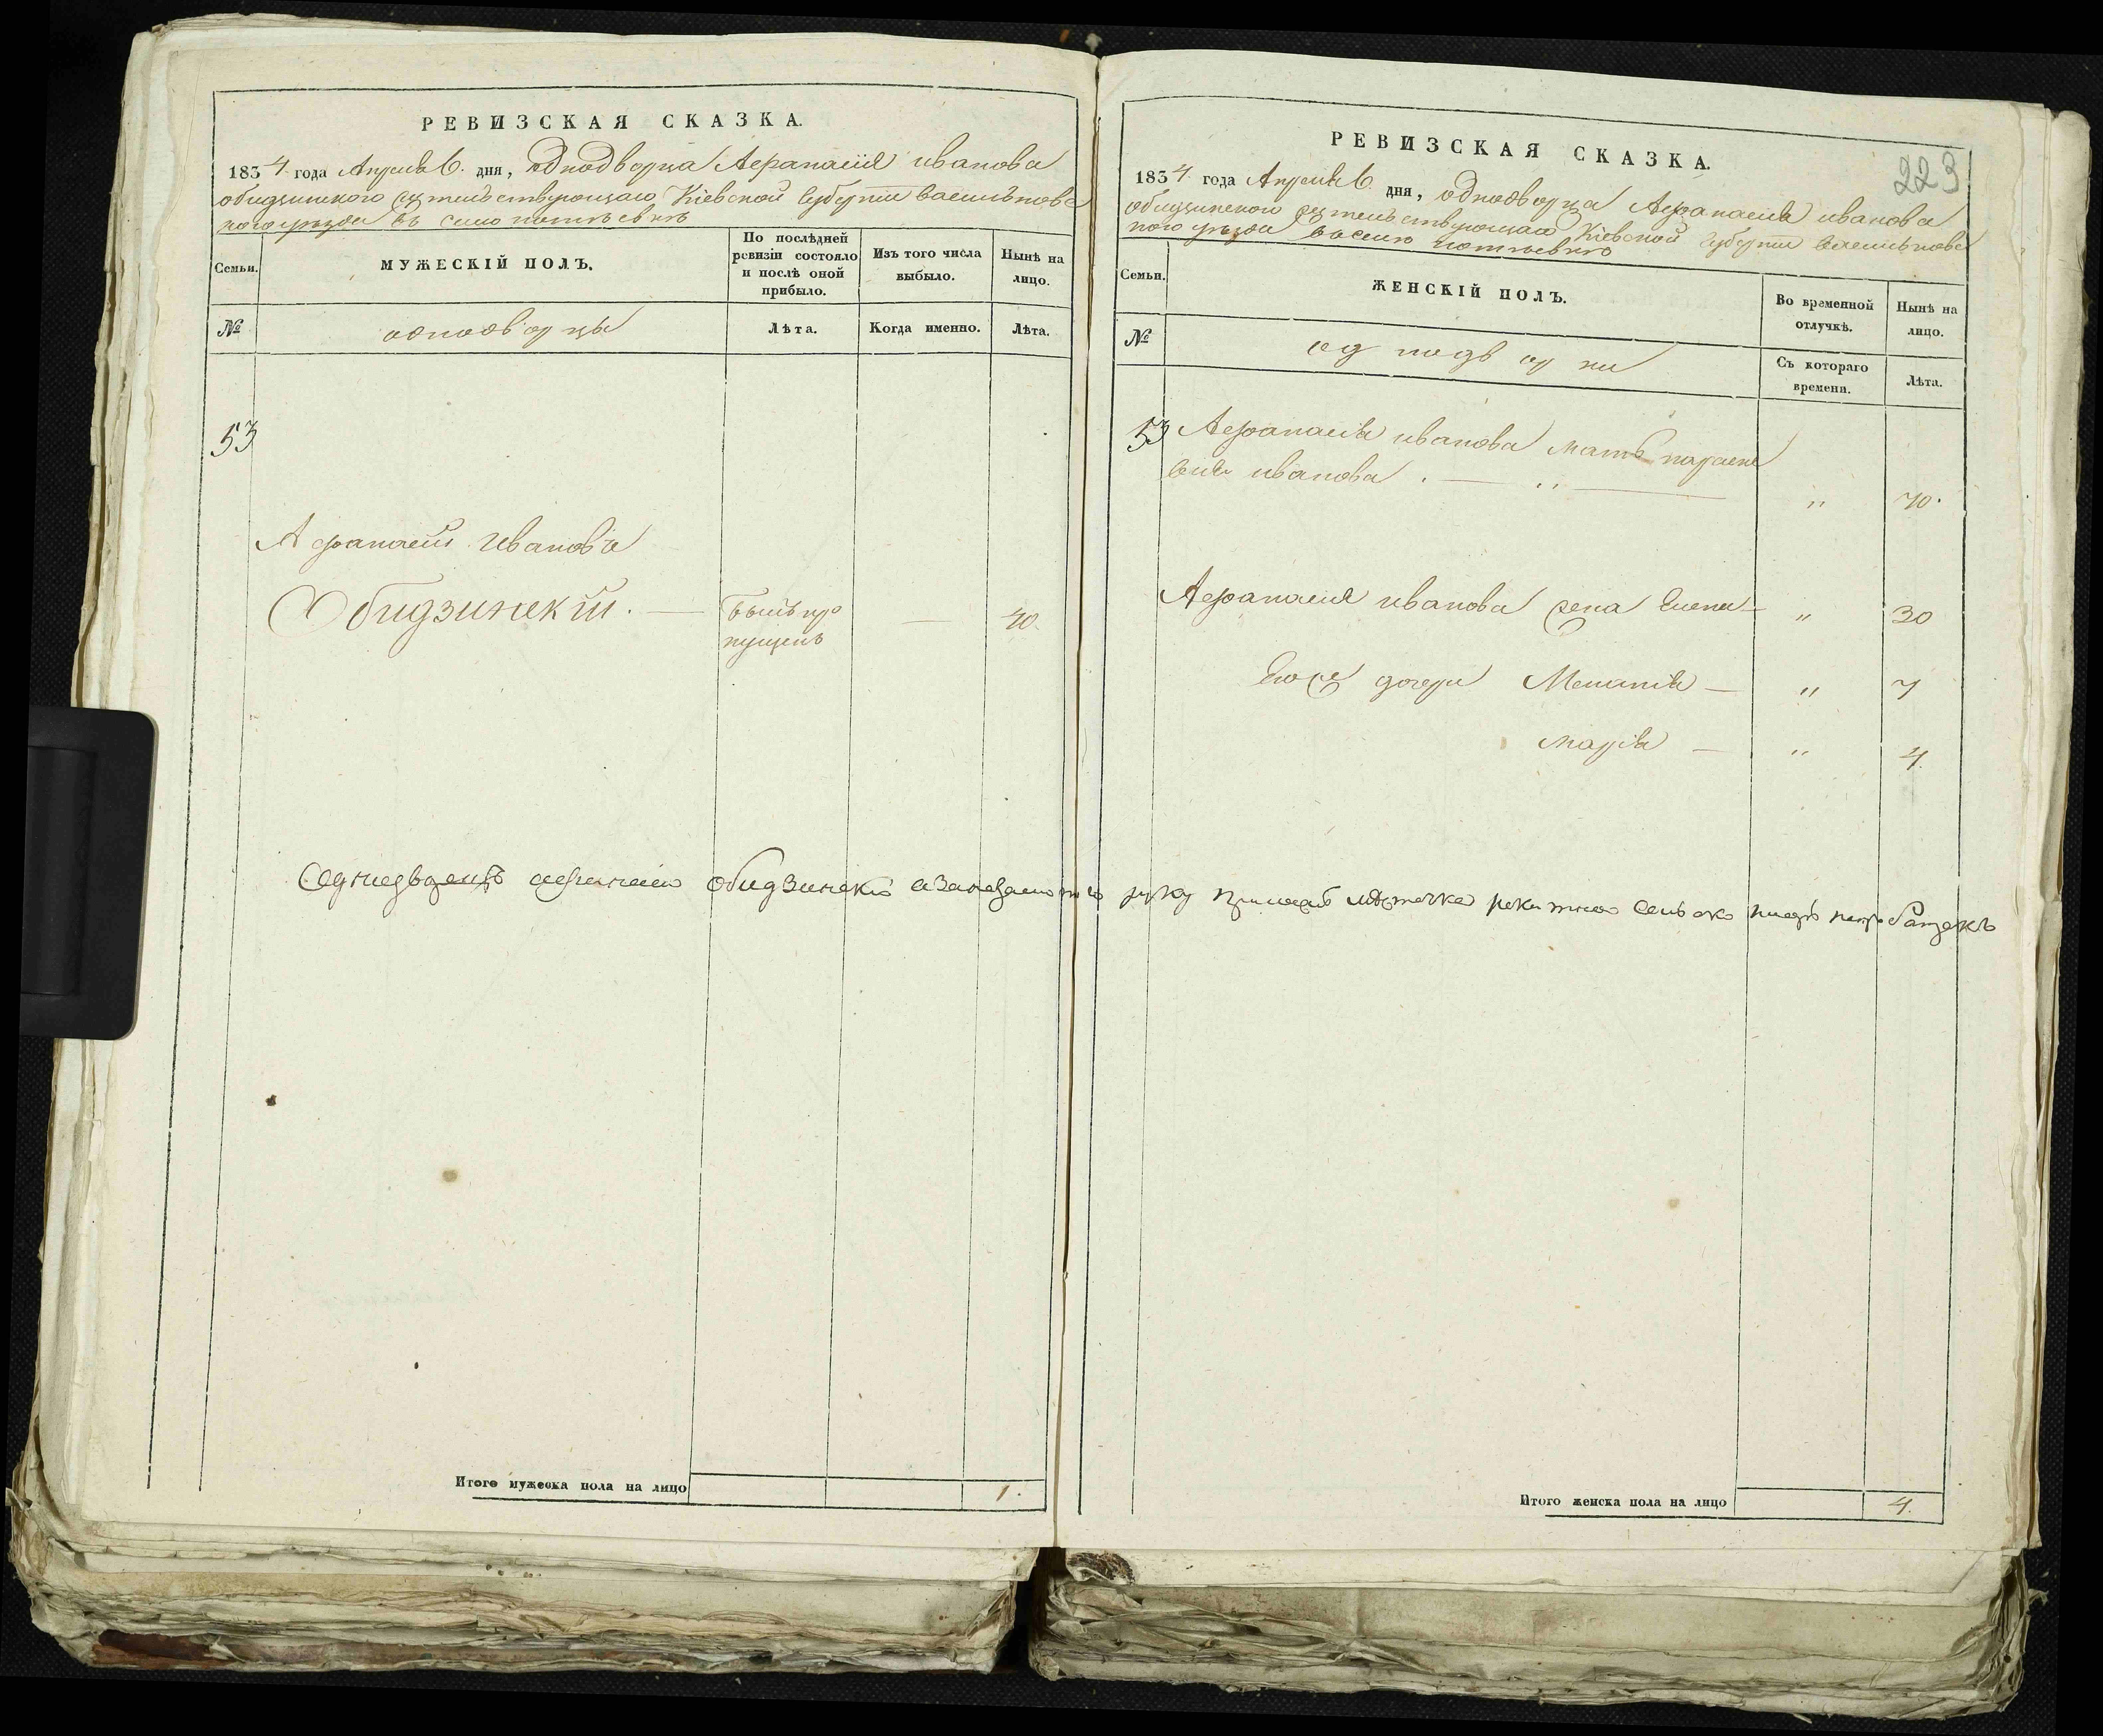 РЕВИЗСКАЯ СКАЗКА.
1834 года Апреля 6. дня, Однодворца Афанасія иванова
обидзинского жительствующаго Кіевской Губерніи Васильковс
кого уезда въ
Семьи.
МУЖЕСКІЙ ПОЛЪ.
По послѣдней ревизіи состояло и послѣ оной прибыло.
Изъ того числа выбыло.
Нынѣ на лицо.
№
однодворцы
Лѣта.
Когда именно.
Лѣта.
53
Афанасій Ивановъ
Обидзинскій. —
былъ про
пущенъ
—
40.
Однодворецъ Обидзинскі
Итого мужеска пола на лицо
1.
223
РЕВИЗСКАЯ СКАЗКА.
1834 года Апреля 6 дня, однодворца Афанасія иванова
обидзинского жительствующаго Кіевской Губерніи Васильковс
кого уезда
Семьи.
ЖЕНСКІЙ ПОЛЪ.
Во временной отлучкѣ.
Нынѣ на лицо.
№
однодворки
Съ котораго времени.
Лѣта.
53 Афанасія иванова мать параске
вія иванова . — „ — „ 70.
Афанасія иванова жена Елена — „ 30
Егоже дочери Меланія — „ 7
марія — „ 4.
руку
Итого женска пола на лицо
4.